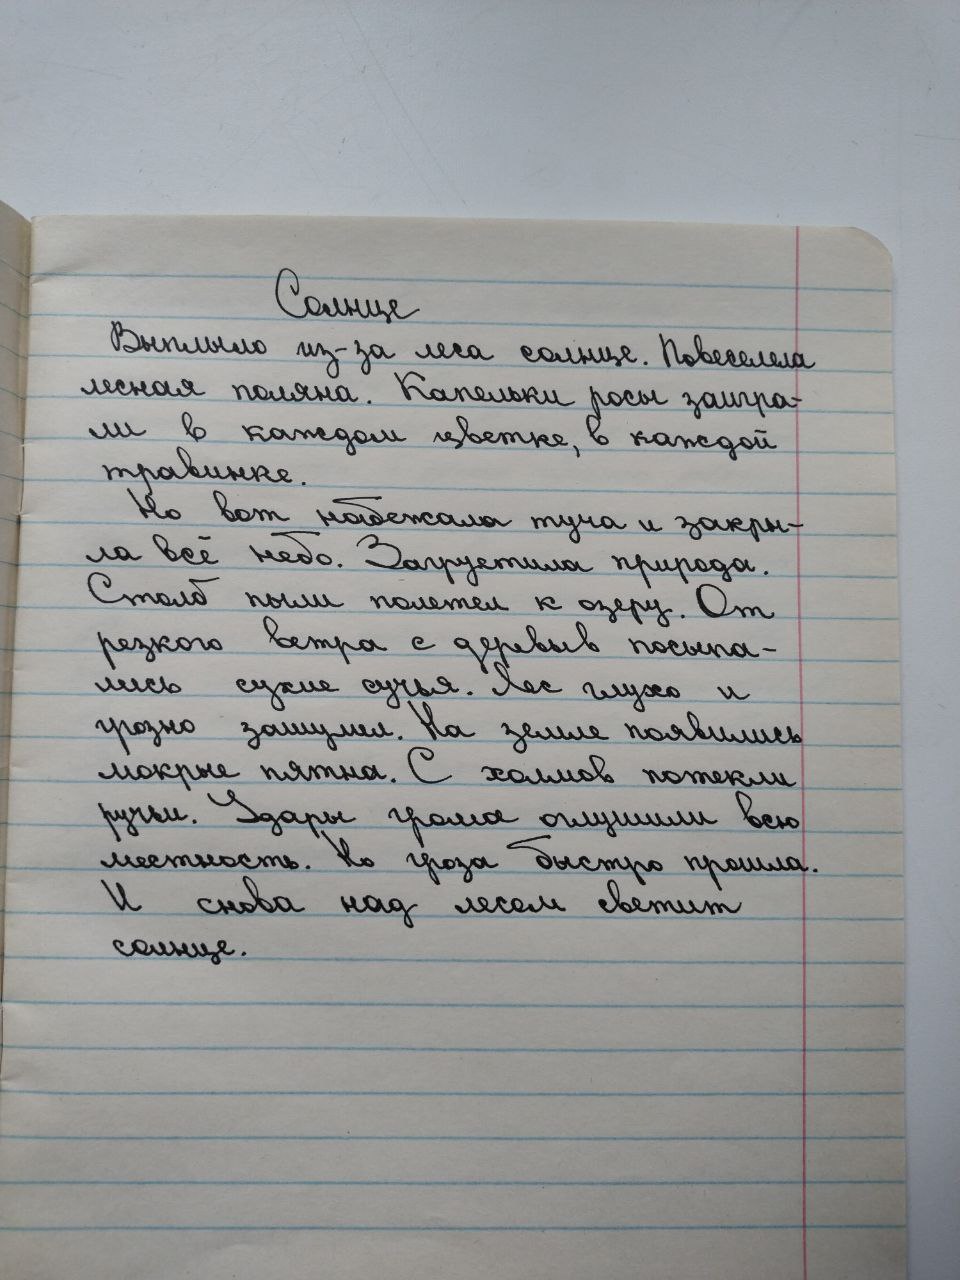 Солнце
Выплыло из-за леса солнце. Повеселела
лесная поляна. Капельки росы заигра-
ли в каждом цветке, в каждой
травинке.
Но вот набежала туча и закры-
ла всё небо. Загрустила природа.
Столб пыли полетел к озеру. От
резкого ветра с деревьв посыпа-
лись сухие сучья. Лес глухо и
грозно зашумел. На земле появились
мокрые пятна. С холмов потекли
ручьи. Удары грома оглушили всю
местность. Но гроза быстро прошла.
И снова над лесом светит
солнце.